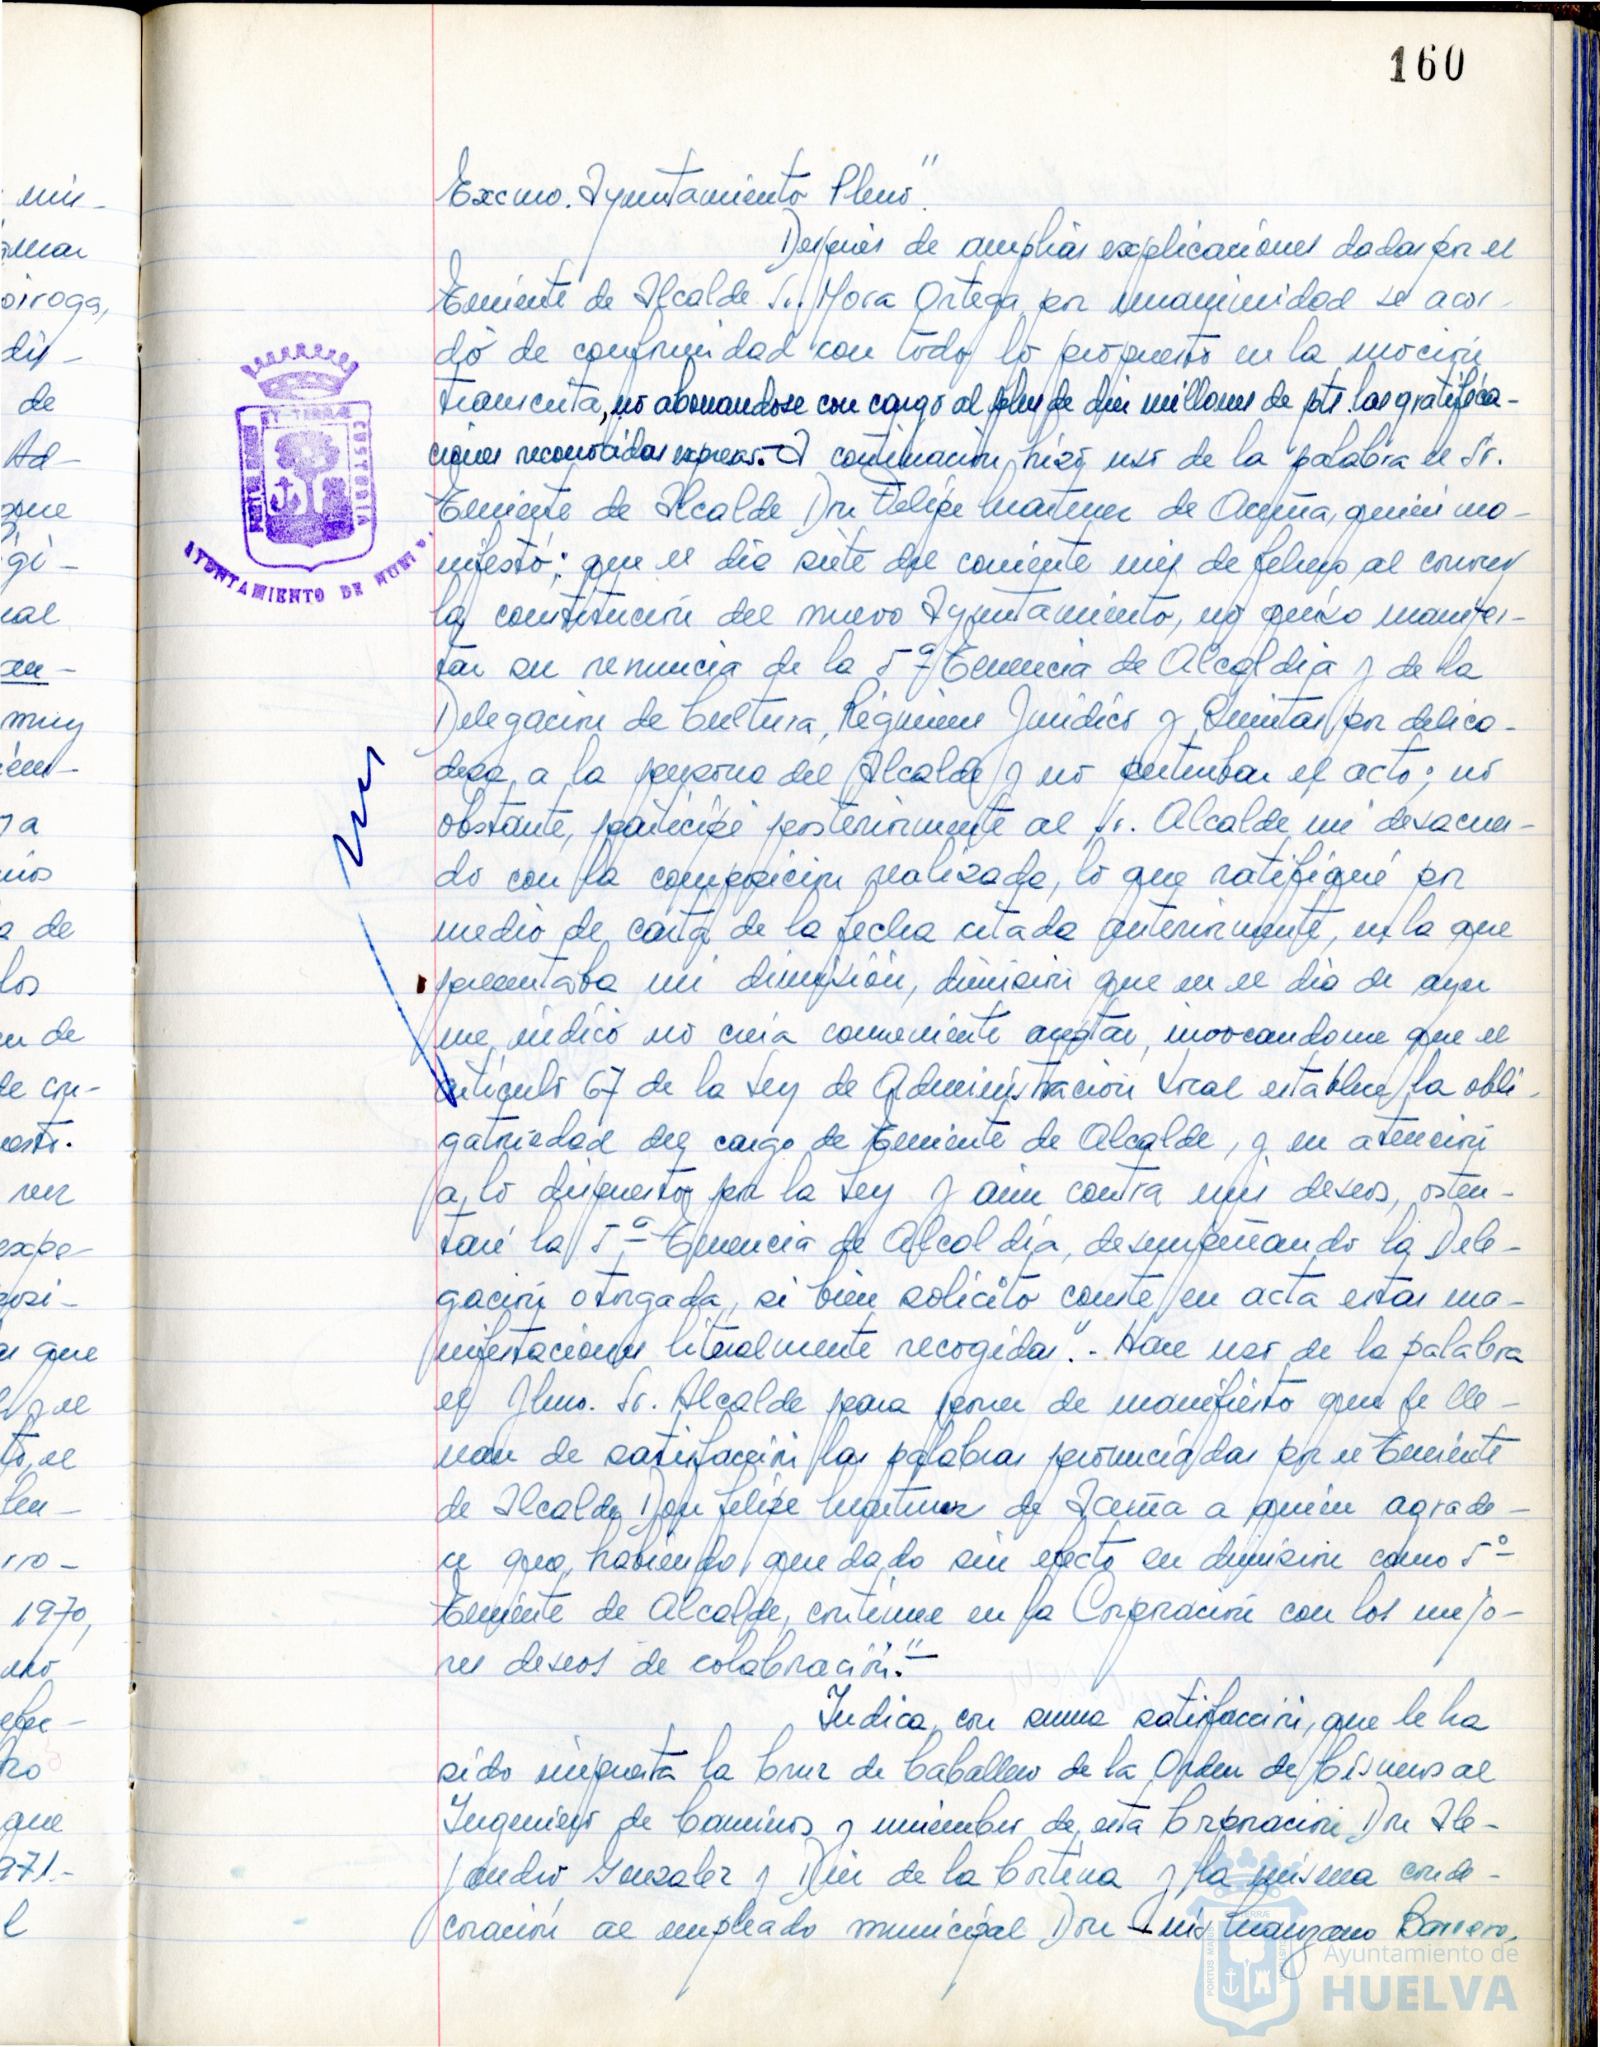 160
Excmo. Ayuntamiento Pleno".
Después de amplias explicaciones dadas por el
Teniente de Alcalde Sr. Mora Ortega, por unanimidad se acor-
dó de conformidad con todo lo propuesto en la moción
transcrita, no abonandose con cargo al plus de diez millones de pts. las gratifica-
ciones reconocidas expresas. A continuación hizo uso de la palabra el Sr.
Teniente de Alcalde Don Felipe Martinez de Acuña, quien ma-
nifestó: que el día siete del corriente mes de febrero, al conocer
la constitución del nuevo Ayuntamiento, no quiso manifes-
tar su renuncia de la 5ª Tenencia de Alcaldia y de la
Delegación de Cultura, Régimen Jurídico y Quintas por delica-
deza, a la persona del Alcalde y no perturbar el acto; no
obstante, participé posteriormente al Sr. Alcalde mi desacuer-
do con la composición realizada, lo que ratifiqué por
medio de carta de la fecha citada anteriormente, en la que
presentaba mi dimisión, dimisión que en el día de ayer
me indicó no creía conveniente aceptar, invocandome que el
artículo 67 de la Ley de Administración Local establece la obli-
gatoriedad del cargo de Teniente de Alcalde, y en atención
a lo dispuesto por la Ley y aun contra mis deseos, osten-
taré la 5ª Tenencia de Alcaldía, desempeñando la Dele-
gación otorgada, si bien solicito conste en acta estas ma-
nifestaciones literalmente recogidas".- Hace uso de la palabra
el Ilmo. Sr. Alcalde para poner de manifiesto que le lle-
nan de satisfacción las palabras pronunciadas por el Teniente
de Alcalde Don Felipe Martinez de Acuña a quien agrade-
ce que, habiendo quedado sin efecto su dimisión como 5º
Teniente de Alcalde, continue en la Corporación con los mejo-
res deseos de colaboración."-
Indica, con suma satisfacción, que le ha
sido impuesta la Cruz de Caballero de la Orden de Cisneros al
Ingeniero de Caminos y miembro de esta Corporación Don Ale-
jandro Gonzalez y Diez de la Cortina y la misma conde-
coración al empleado municipal Don Luis Manzano Barrero,
AYUNTAMIENTO DE
Ayuntamiento de
HUELVA